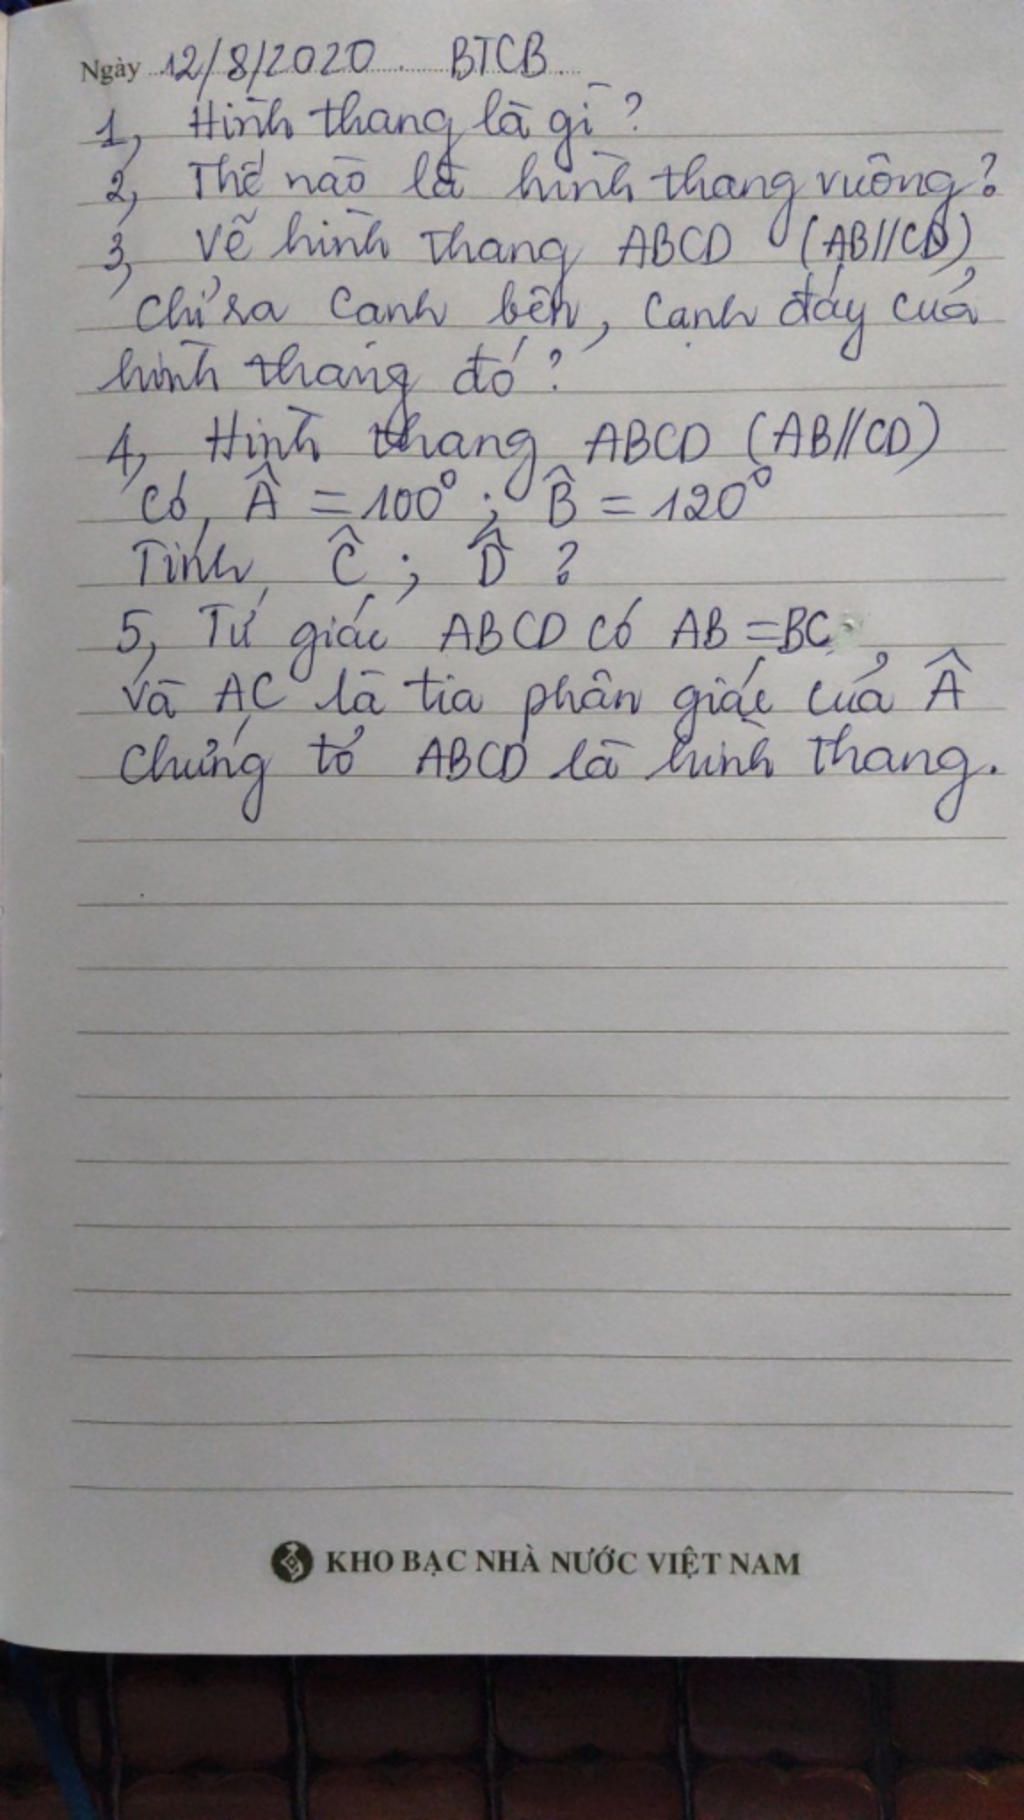 Ngày 12/8/2020. BTCB
1, Hình thang là gì?
2, Thế nào là hình thang vuông?
3, Vẽ hình thang ABCD (AB//CD)
chỉ ra cạnh bên, cạnh đáy của
hình thang đó?
4, Hình thang ABCD (AB//CD)
Có, Â = 100°; B̂ = 120°
Tính, Ĉ; D̂ ?
5, Tứ giác ABCD có AB = BC
và AC là tia phân giác của Â
Chứng tỏ ABCD là hình thang.
KHO BẠC NHÀ NƯỚC VIỆT NAM